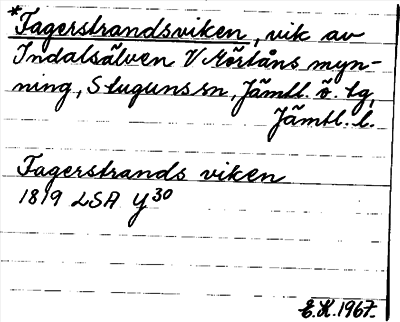 *Fagerstrandsviken, vik av
Indalsälven V Mörtåns myn-
ning, Stuguns sn, Jämtl. ö. tg,
Jämtl. l.
Fagerstrands viken
1819 LSA Y30
E.H. 1967.